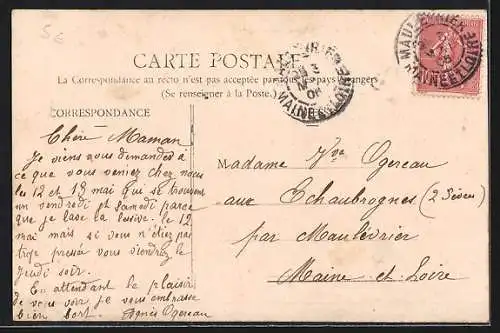 5€
CARTE POSTALE
La Correspondance au recto n'est pas acceptée par tous les pays étrangers
(Se renseigner à la Poste.)
CORRESPONDANCE
Chère Maman
Je viens vous demander à
ce que vous veniez chez nous
le 12 et 13 mai que se trouve
un vendredi et samedi parce
que je lave la lessive. le 12
mai mais si vous n'étiez pas
trop pressé vous viendriez le
jeudi soir.
En attendant le plaisir
de vous voir je vous embrasse
bien fort. Agnès Ogereau
Madame Vve Ogereau
aux Echaubrognes (2 Sèvres)
par Maulévrier
Maine et Loire
MAULÉVRIER
MAINE ET LOIRE